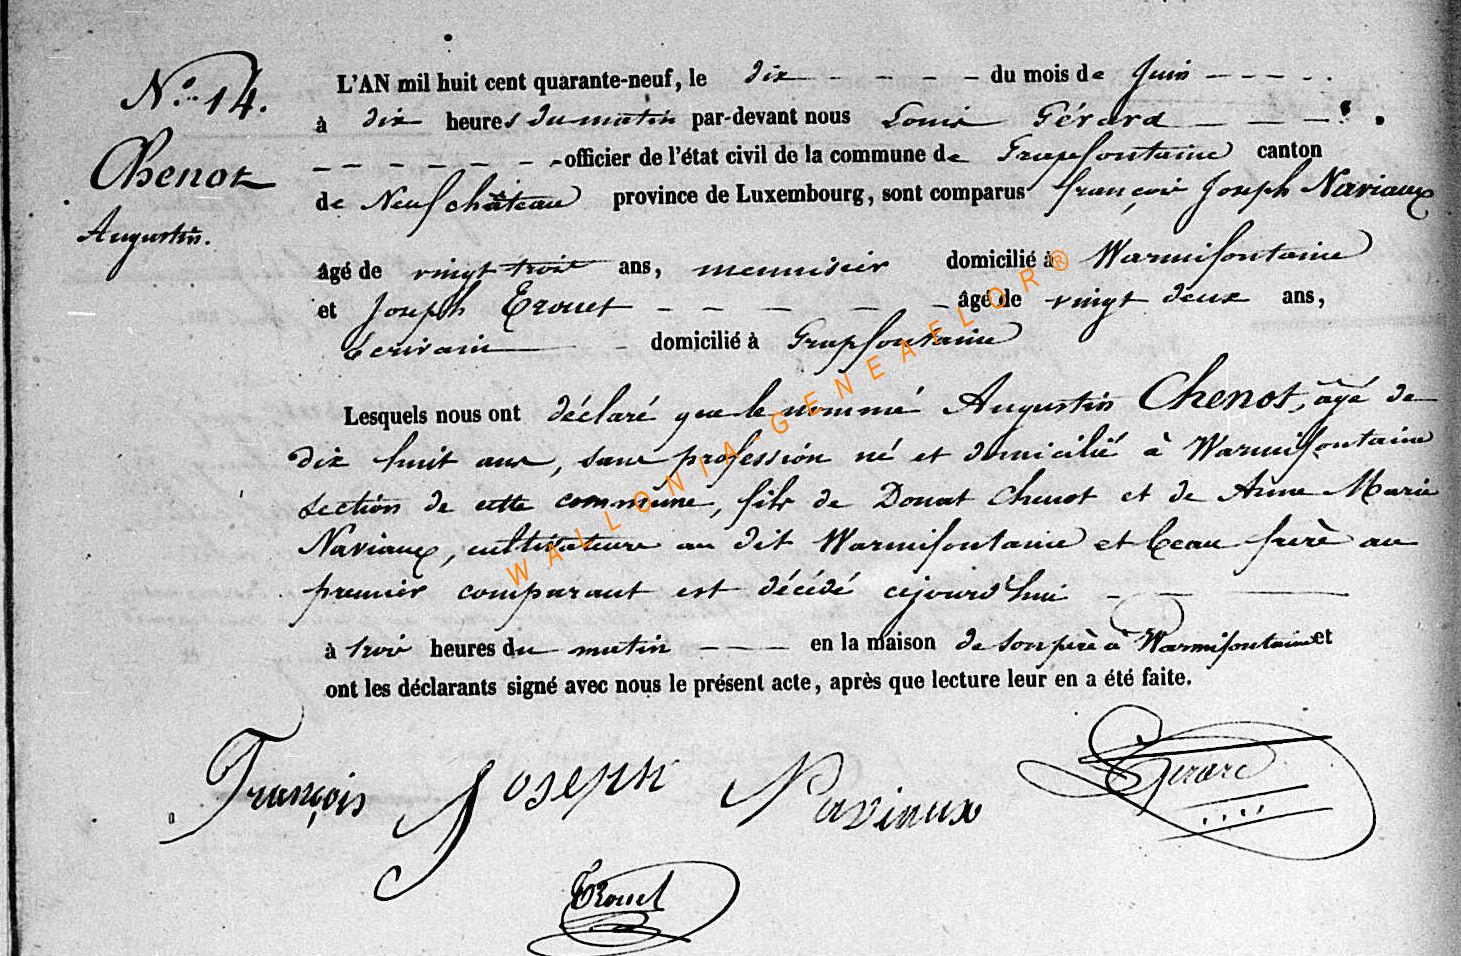 N.o 14.
Chenot
Augustin.
L'AN mil huit cent quarante-neuf, le dix - - - - - du mois de Juin - - - -
à dix heures du matin par-devant nous Louis Gérard - - -
- - - - - - officier de l'état civil de la commune de Grapfontaine canton
de Neufchâteau province de Luxembourg, sont comparus françois Joseph Naviaux
âgé de vingt trois ans, menuisier domicilié à Warmifontaine
et Joseph Trouet - - - - - âgé de vingt deux ans,
Ecrivain - domicilié à Grapfontaine
Lesquels nous ont déclaré que le nommé Augustin Chenot, âgé de
dix huit ans, sans profession né et domicilié à Warmifontaine
section de cette commune, fils de Donat Chenot et de Anne Marie
Naviaux, cultivateurs au dit Warmifontaine et beau frère au
premier comparant est décédé cejourd'hui - - -
à trois heures du matin - - - en la maison de son père à Warmifontaine et
ont les déclarants signé avec nous le présent acte, après que lecture leur en a été faite.
François Joseph Naviaux
Gérard
Trouet
WALLONIA-GENEAFLOR®